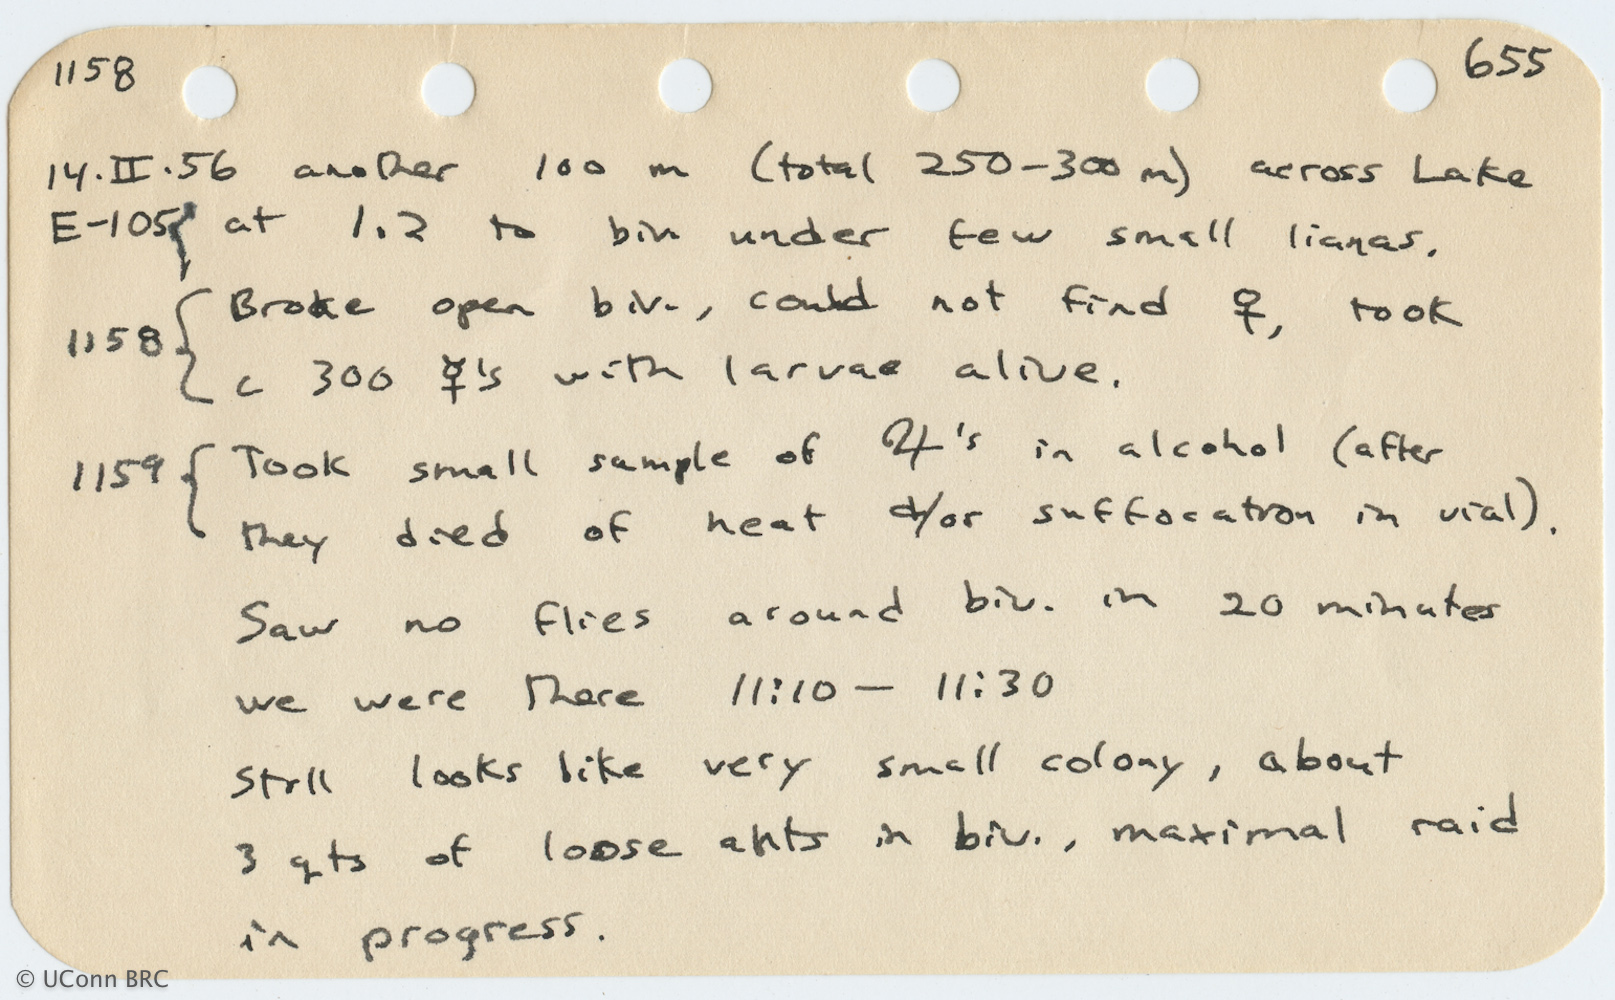 1158 655
14.II.56 another 100 m (total 250-300 m) across Lake
E-105 { at 1.2 to biv under few small lianas.
1158 { Broke open biv., could not find ♀, took
c 300 ☿'s with larvae alive.
1159 { Took small sample of ♃'s in alcohol (after
they died of heat &/or suffocation in vial).
Saw no flies around biv. in 20 minutes
we were there 11:10 — 11:30
Still looks like very small colony, about
3 qts of loose ants in biv., maximal raid
in progress.
© UConn BRC